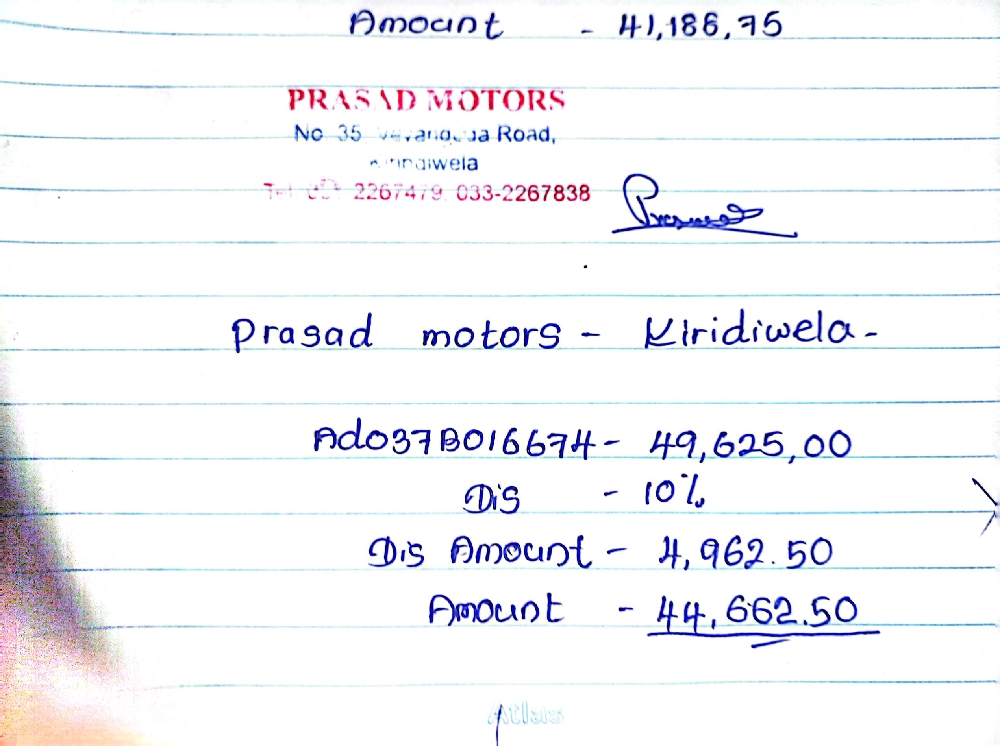 Amount - 41,186,75
PRASAD MOTORS
No 35 Road,
Tel 2267479 033-2267838
Prasad motors - Kiridiwela -
Ad037B016674 - 49,625,00
Dis - 10%
Dis Amount - 4,962.50
Amount - 44,662.50
Atlas